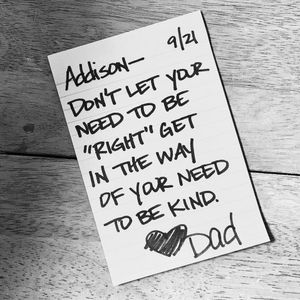 9/21
Addison—
DON'T LET YOUR
NEED TO BE
"RIGHT" GET
IN THE WAY
OF YOUR NEED
TO BE KIND.
Dad